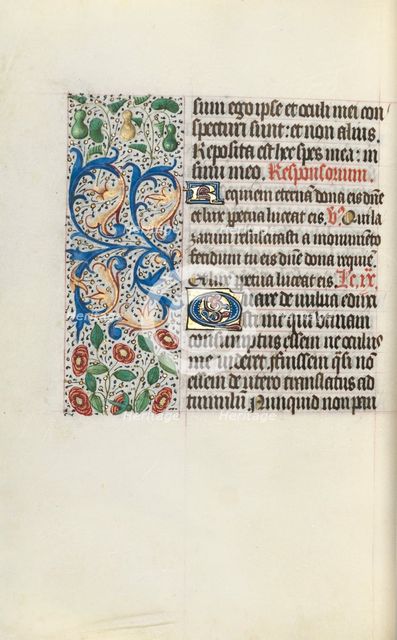 sum ego ipse et oculi mei con
specturi sunt: et non alius.
Reposita est hec spes mea: in
sinu meo. Responsorium.
Requiem eternam dona eis dne
et lux perpetua luceat eis. Vs Qui la
zarum resuscitasti a monumento
fetidum tu eis dne dona requie.
Et lux perpetua luceat eis. Le. ix.
Quare de vulva eduxi
sti me qui utinam
consumptus essem ne oculus
me videret. fuissem qsi nō
essem de utero translatus ad
tumulū. Nunquid non pau
Heritage
Heritage